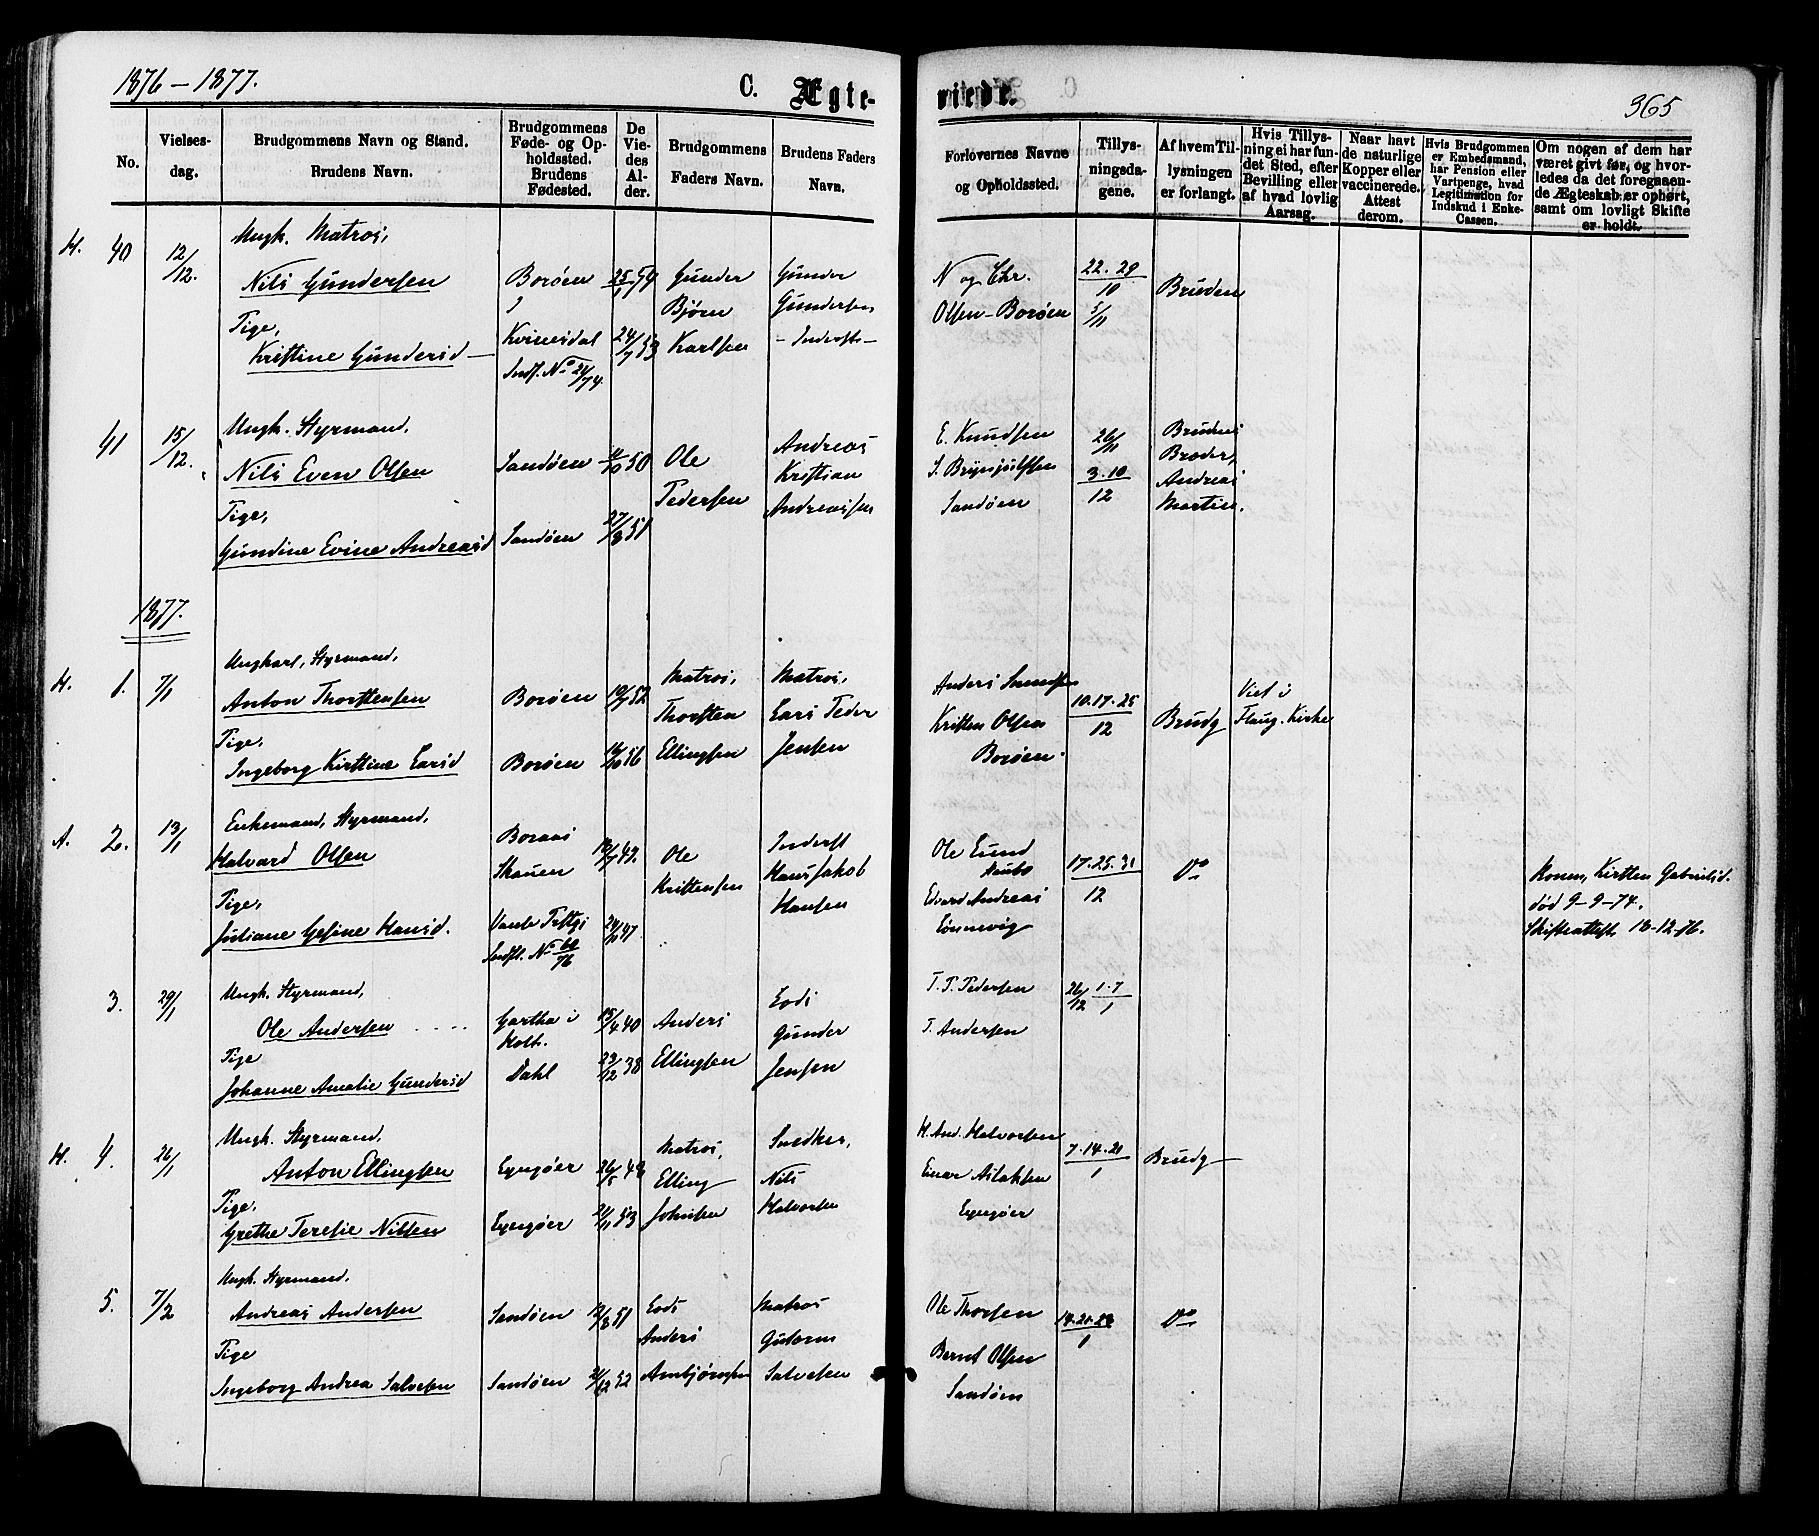 1876 – 1877.
C. Ægte-
viede.
365
No.
Vielses-
dag.
Brudgommens Navn og Stand.
Brudens Navn.
Brudgommens
Føde- og Op-
holdssted.
Brudens
Fødested.
De
Vie-
des
Al-
der.
Brudgommens
Faders Navn.
Brudens Faders
Navn.
Forlovernes Navne
og Opholdssted.
Tillys-
ningsda-
gene.
Af hvem Til-
lysningen
er forlangt.
Hvis Tillys-
ning ei har fun-
det Sted, efter
Bevilling eller
af hvad lovlig
Aarsag.
Naar havt
de naturlige
Kopper eller
vaccinerede.
Attest
derom.
Hvis Brudgommen
er Embedsmand,
har Pension eller
Vartpenge, hvad
Legitimation for
Indskud i Enke-
Cassen.
Om nogen af dem har
været givt før, og hvor-
ledes da det foregaaen-
de Ægteskab er ophørt,
samt om lovligt Skifte
er holdt.
H. 40 12/12.
Ungk. Matros,
Nils Gundersen
Tige,
Kristine Gundersd
Borøen
Kvinesdal
Indf. No 24/74
24/7 53
Gunder
Bjørn
Karlsen
Gunder
Gundersen
- Inderste -
N og Chr.
Olsen - Borøen
22. 29/10
5/11
Bruden
41 15/12.
Ungk. Styrmand,
Nils Even Olsen
Tige,
Gundine Evine Andreasd
Sandøen
Sandøen
27/8 51
Ole
Pedersen
Andreas
Kristian
Andreassen
E. Knudsen
S. Brynjulfsen
Sandøen
26/11
3. 10/12
Brudens
Broder,
Andreas
Martin.
1877.
H. 1. 7/1
Ungkarl, Styrmand,
Anton Thorstensen
Tige,
Ingeborg Kirstine Larsd
Borøen
Borøen
Matros,
Thorsten
Ellingsen
Matros,
Lars Peder
Jensen
Kristen Olsen
Borøen
10. 17. 25/12
Brudg
Viet i
Flaug. Kirke
A. 2. 13/1
Enkemand, Styrmand,
Halvard Olsen
Tige,
Juliane Gesine Hansd.
Boraas
Skauen
24/10 47
Ole
Kristensen
Inderst
Hans Jakob
Hansen
Ole Lund
Edvard Andreas
Lønnevig
17. 25. 31/12
Do
Konen, Kirsten Gabrielsd.
død 9-9-74.
Skifteattest 18-12-76.
3. 29/1
Ungk. Styrmand,
Ole Andersen
Tige
Johanne Amalie Gundersd
Gartha i
Holt.
Dahl
15/4 40
Anders
Ellingsen
Lods
Gunder
Jensen
T. P. Pedersen
T. Andersen
26/12 1. 7/1
H. 4. 26/1
Ungk. Styrmand,
Anton Ellingsen
Tige,
Grethe Teresie Nilsen
Lyngøer
Lyngøer
Matros,
Elling
Johnsen
Snedker,
Nils
Halvorsen
H. And. Halvorsen
Einar Aslaksen
Lyngøer
7. 14. 21/1
Brudg
5. 7/2
Ungk. Styrmand.
Andreas Andersen
Tige
Ingeborg Andrea Salvesen
Sandøen
Sandøen
Lods
Anders
Ambjørnsen
Matros
Gutorm
Salvesen
Ole Thorsen
Bernt Olsen
Sandøen
14. 21. 28/1
Do